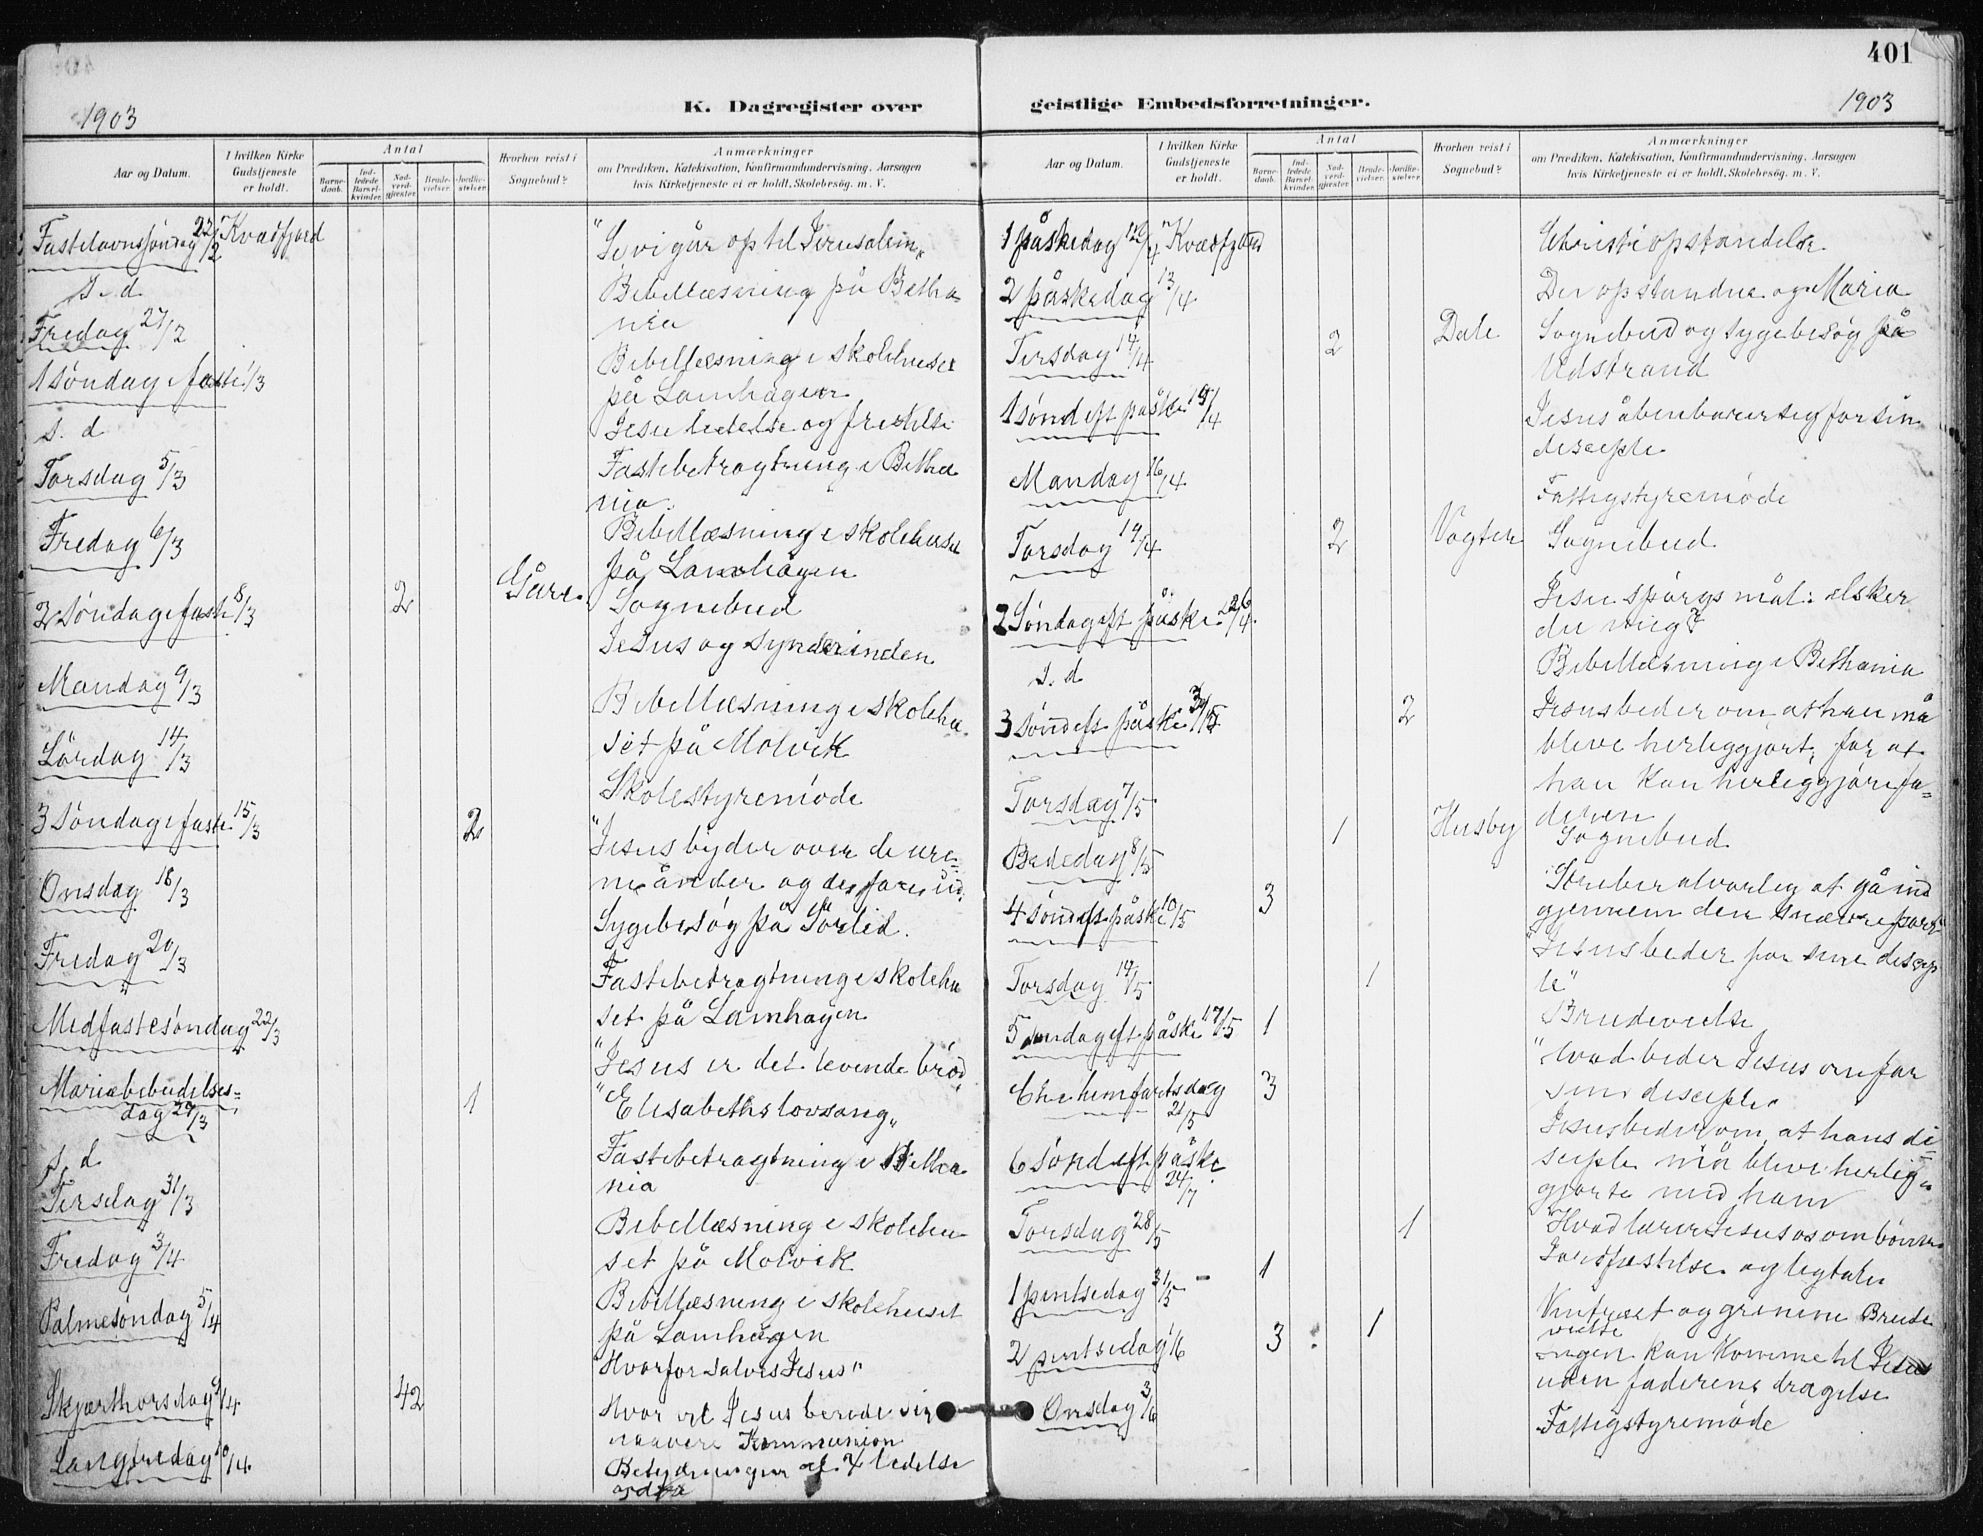 401
1903
K. Dagregister over
geistlige Embedsforretninger.
1903
Aar og Datum.
I hvilken Kirke Gudstjeneste er holdt.
Antal
Barnedaab.
Indledede Barselkvinder.
Nadverdgjester.
Brudevielser.
Jordfæstelser.
Hvorhen reist i Sognebud?
Anmærkninger
om Prædiken, Katekisation, Konfirmandundervisning, Aarsagen
hvis Kirketjeneste ei er holdt, Skolebesøg m. V.
Fastelavnssöndag 22/2 Kvædfjord "Se vi går op til Jerusalem"
s. d Bibellæsning på Betha-
nia
Fredag 27/2 Bibellæsning i skolehuset
på Lamhagen
1 söndag i faste 1/3 Jesu lidelse og fristelse
s. d Fastebetragtning i Betha
nia.
Torsdag 5/3
Fredag 6/3 Bibellæsning i skolehuset
på Lamhagen
2 Söndag i faste 8/3 2 Sognebud
Jesus og synderinden
Mandag 9/3 Bibellæsning i skolehu
set på Molvik
Lördag 14/3 Skolestyremöde
3 Söndag i faste 15/3 2 "Jesus byder over de ure-
ne ånder og de fare ud.
Onsdag 18/3 Sygebesög på Sörlid.
Fredag 20/3 Fastebetragtning i skolehu
set på Lamhagen
Midfastesöndag 22/3 "Jesus er det levende bröd"
Mariæbebudelses=
dag 29/3 1 "Elisabeths lovsang"
s. d Fastebetragtning i Betha
nia
Tirsdag 31/3 Bibellæsning i skolehu
set på Molvik
Fredag 3/4 Bibellæsning i skolehuset
på Lamhagen
Palmesöndag 5/4 "Hvorfor salves Jesus"
Skjærthorsdag 9/4 42 Hvor vil Jesus berede sig
Kommunion
Langfredag 10/4 Betydningen af lidelse
Aar og Datum.
I hvilken Kirke Gudstjeneste er holdt.
Antal
Barnedaab.
Indledede Barselkvinder.
Nadverdgjester.
Brudevielser.
Jordfæstelser.
Hvorhen reist i Sognebud?
Anmærkninger
om Prædiken, Katekisation, Konfirmandundervisning, Aarsagen
hvis Kirketjeneste ei er holdt, Skolebesøg m. V.
1 påskedag 12/4 Kvædfjord Christi opstandelse
2 påskedag 13/4 Den opstandne og Maria
Tirsdag 14/4 2 Dale Sognebud og sygebesög på
Vedstrand
1 sönd eft påske 19/4 Jesus åbenbarer sig for sin
disciple
Mandag 16/4 Fattigstyremöde
Torsdag 2 Sognebud
2 Söndag eft påske 26/4 Jesu spörgsmål: elsker
du mig?
s. d Bibellæsning i Bethania
3 sönd eft påske 2 Jesus beder om at han må
blive herliggjort, for at
han kan herliggjöre fa-
deren
Torsdag 7/5 1 Husby Sognebud
Bededag 8/5 Stræber alvorlig at gå ind
gjennem den snævre port"
4 sönd eft påske 10/5 3 "Jesus beder for sine discip
le"
Torsdag 14/5 1 Brudevielse
5 söndag eft påske 17/5 1 "Hvad beder Jesus om for
sin disciple
Chr. himfartsdag 21/5 3 Jesus beder om at hans di-
sciple må blive herlig-
gjorte med ham
6 sönd eft påske "Hvad lærer Jesus os om bönnen
Torsdag 28/5 1 Jordfæstelse og ligtale
1 pintsedag 31/5 1 Vintræet og grenene Brude
vielse
2 pintsedag 1/6 3 1 Ingen kan komme til Jesus
uden faderens dragelse
Onsdag 3/6 Fattigstyremöde